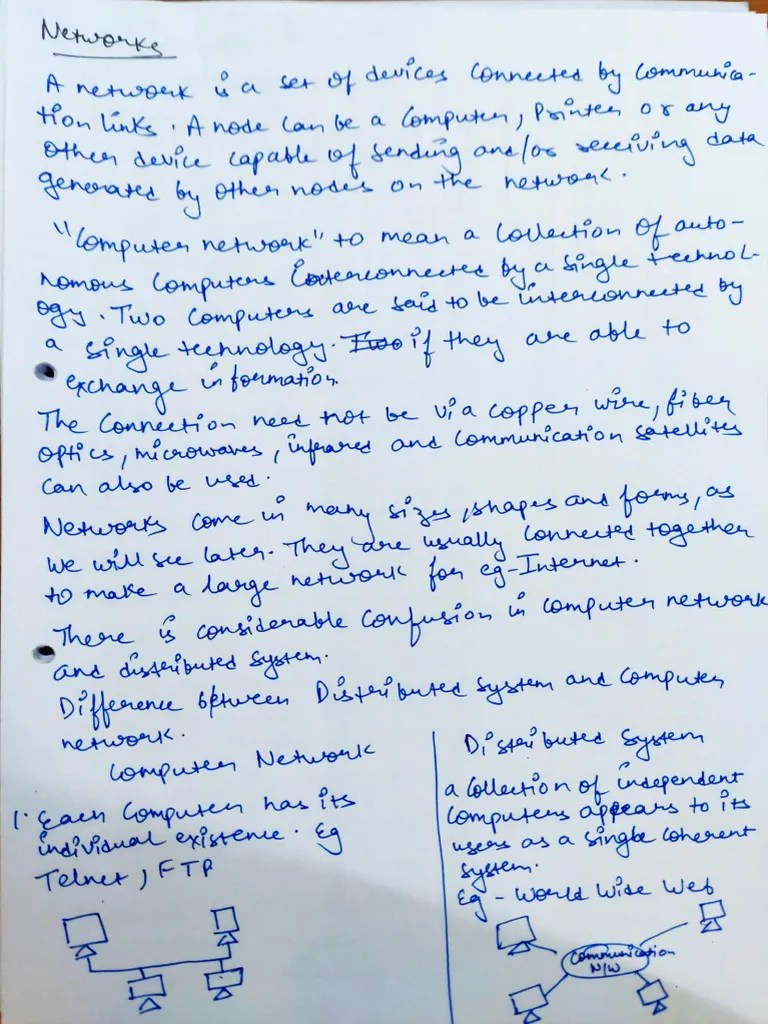 Networks
A network is a set of devices connected by communica-
tion links. A node can be a computer, printer or any
other device capable of sending and/or receiving data
generated by other nodes on the network.
"Computer network" to mean a collection of auto-
nomous computers interconnected by a single technol-
ogy. Two computers are said to be interconnected by
a single technology. Two if they are able to
exchange information.
The connection need not be via copper wire, fiber
optics, microwaves, infrared and communication satellites
can also be used.
Networks come in many sizes, shapes and forms, as
we will see later. They are usually connected together
to make a large network for eg-Internet.
There is considerable confusion in computer network
and distributed system.
Difference between Distributed system and computer
network.
Computer Network
1. Each computer has its
individual existence. Eg
Telnet, FTP
Distributed System
a collection of independent
computers appears to its
users as a single coherent
system.
Eg - World Wide Web
Communication
N/W